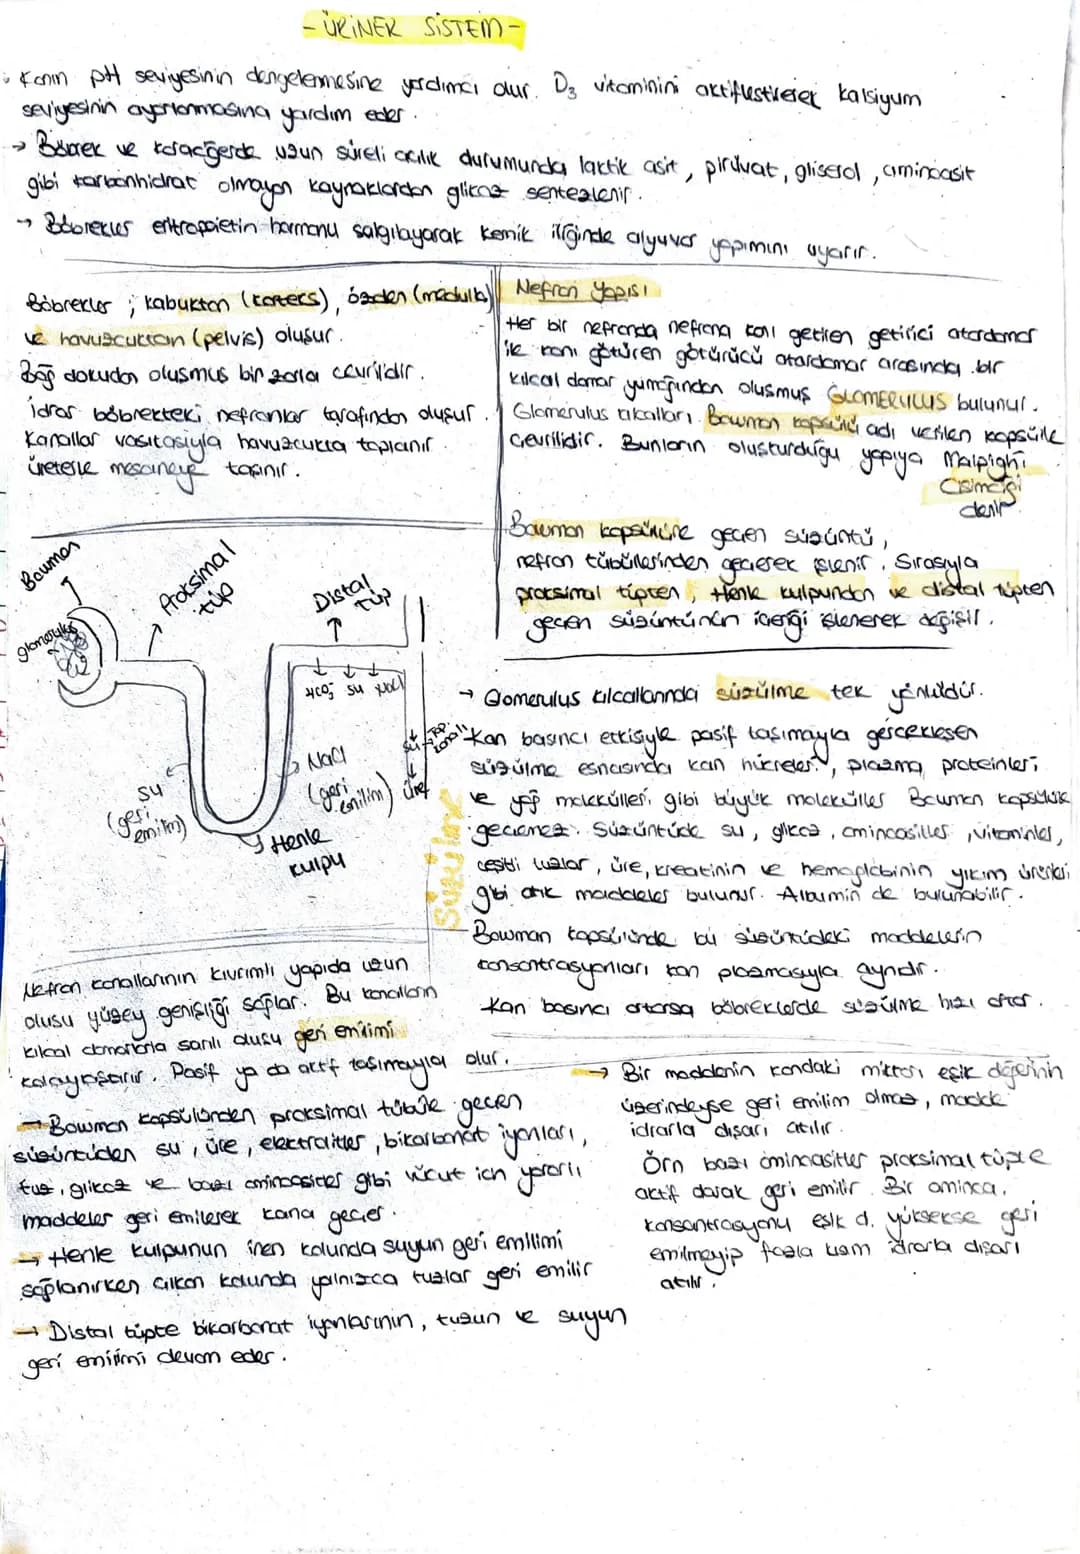 - ÜRİNER SİSTEM -
Kanın pH seviyesinin dengelenmesine yardımcı olur. D3 vitaminini aktifleştirerek kalsiyum
seviyesinin ayarlanmasına yardım eder.
→ Böbrek ve karaciğerde uzun süreli açlık durumunda laktik asit, pirüvat, gliserol, aminoasit
gibi karbonhidrat olmayan kaynaklardan glikoz sentezlenir.
→ Böbrekler eritropoietin hormonu salgılayarak kemik iliğinde alyuvar yapımını uyarır.
Böbrekler; kabuktan (korteks), özden (medulla)
ve havuzcuktan (pelvis) oluşur.
Bağ dokudan oluşmuş bir zarla çevrilidir.
İdrar böbrekteki nefronlar tarafından oluşur.
Kanallar vasıtasıyla havuzcukta toplanır.
üreterle mesaneye taşınır.
Nefron Yapısı
Her bir nefronda nefrona kanı getiren getirici atardamar
ile kanı götüren götürücü atardamar arasında bir
kılcal damar yumağından oluşmuş GLOMERULUS bulunur.
Glomerulus kılcalları Bowman kapsülü adı verilen kapsülle
çevrilidir. Bunların oluşturduğu yapıya Malpighi
Cisimciği
denir.
Bowman kapsülüne geçen süzüntü,
nefron tübüllerinden geçerek işlenir. Sırasıyla
proksimal tüpten, Henle kulpundan ve distal tüpten
geçen süzüntünün içeriği işlenerek değişir.
Bowman
glomerulus
Proksimal
tüp
Distal
tüp
HCO3⁻ su NaCl
su
(geri
emilim)
NaCl
(geri
emilim)
Henle
kulpu
su
Top.
kanalı
üre
Süzülme
→ Glomerulus kılcallarındaki süzülme tek yönlüdür.
Kan basıncı etkisiyle pasif taşımayla gerçekleşen
süzülme esnasında kan hücreleri, plazma proteinleri
ve yağ molekülleri gibi büyük moleküller Bowman kapsülüne
geçemez. Süzüntüde su, glikoz, aminoasitler, vitaminler,
çeşitli tuzlar, üre, kreatinin ve hemoglobinin yıkım ürünleri
gibi atık maddeler bulunur. Albumin de bulunabilir.
Bowman kapsülünde bu süzüntüdeki maddelerin
konsantrasyonları kan plazmasıyla aynıdır.
Kan basıncı artarsa böbreklerde süzülme hızı artar.
Nefron kanallarının kıvrımlı yapıda uzun
olusu yüzey genişliği sağlar. Bu kanalların
kılcal damarlarla sarılı olusu geri emilimi
kolaylaştırır. Pasif ya da aktif taşımayla olur.
→ Bowman kapsülünden proksimal tübüle geçen
süzüntüden su, üre, elektrolitler, bikarbonat iyonları,
tuz, glikoz ve bazı aminoasitler gibi vücut için yararlı
maddeler geri emilerek kana geçer.
→ Henle kulpunun inen kolunda suyun geri emilimi
sağlanırken çıkan kolunda yalnızca tuzlar geri emilir
→ Distal tüpte bikarbonat iyonlarının, tuzun ve suyun
geri emilimi devam eder.
→ Bir maddenin kandaki miktarı eşik değerinin
üzerindeyse geri emilim olmaz, madde
idrarla dışarı atılır.
Örn bazı aminoasitler proksimal tüpte
aktif olarak geri emilir. Bir aminoa.
konsantrasyonu eşik d. yüksekse geri
emilmeyip fazla kısım idrarla dışarı
atılır.